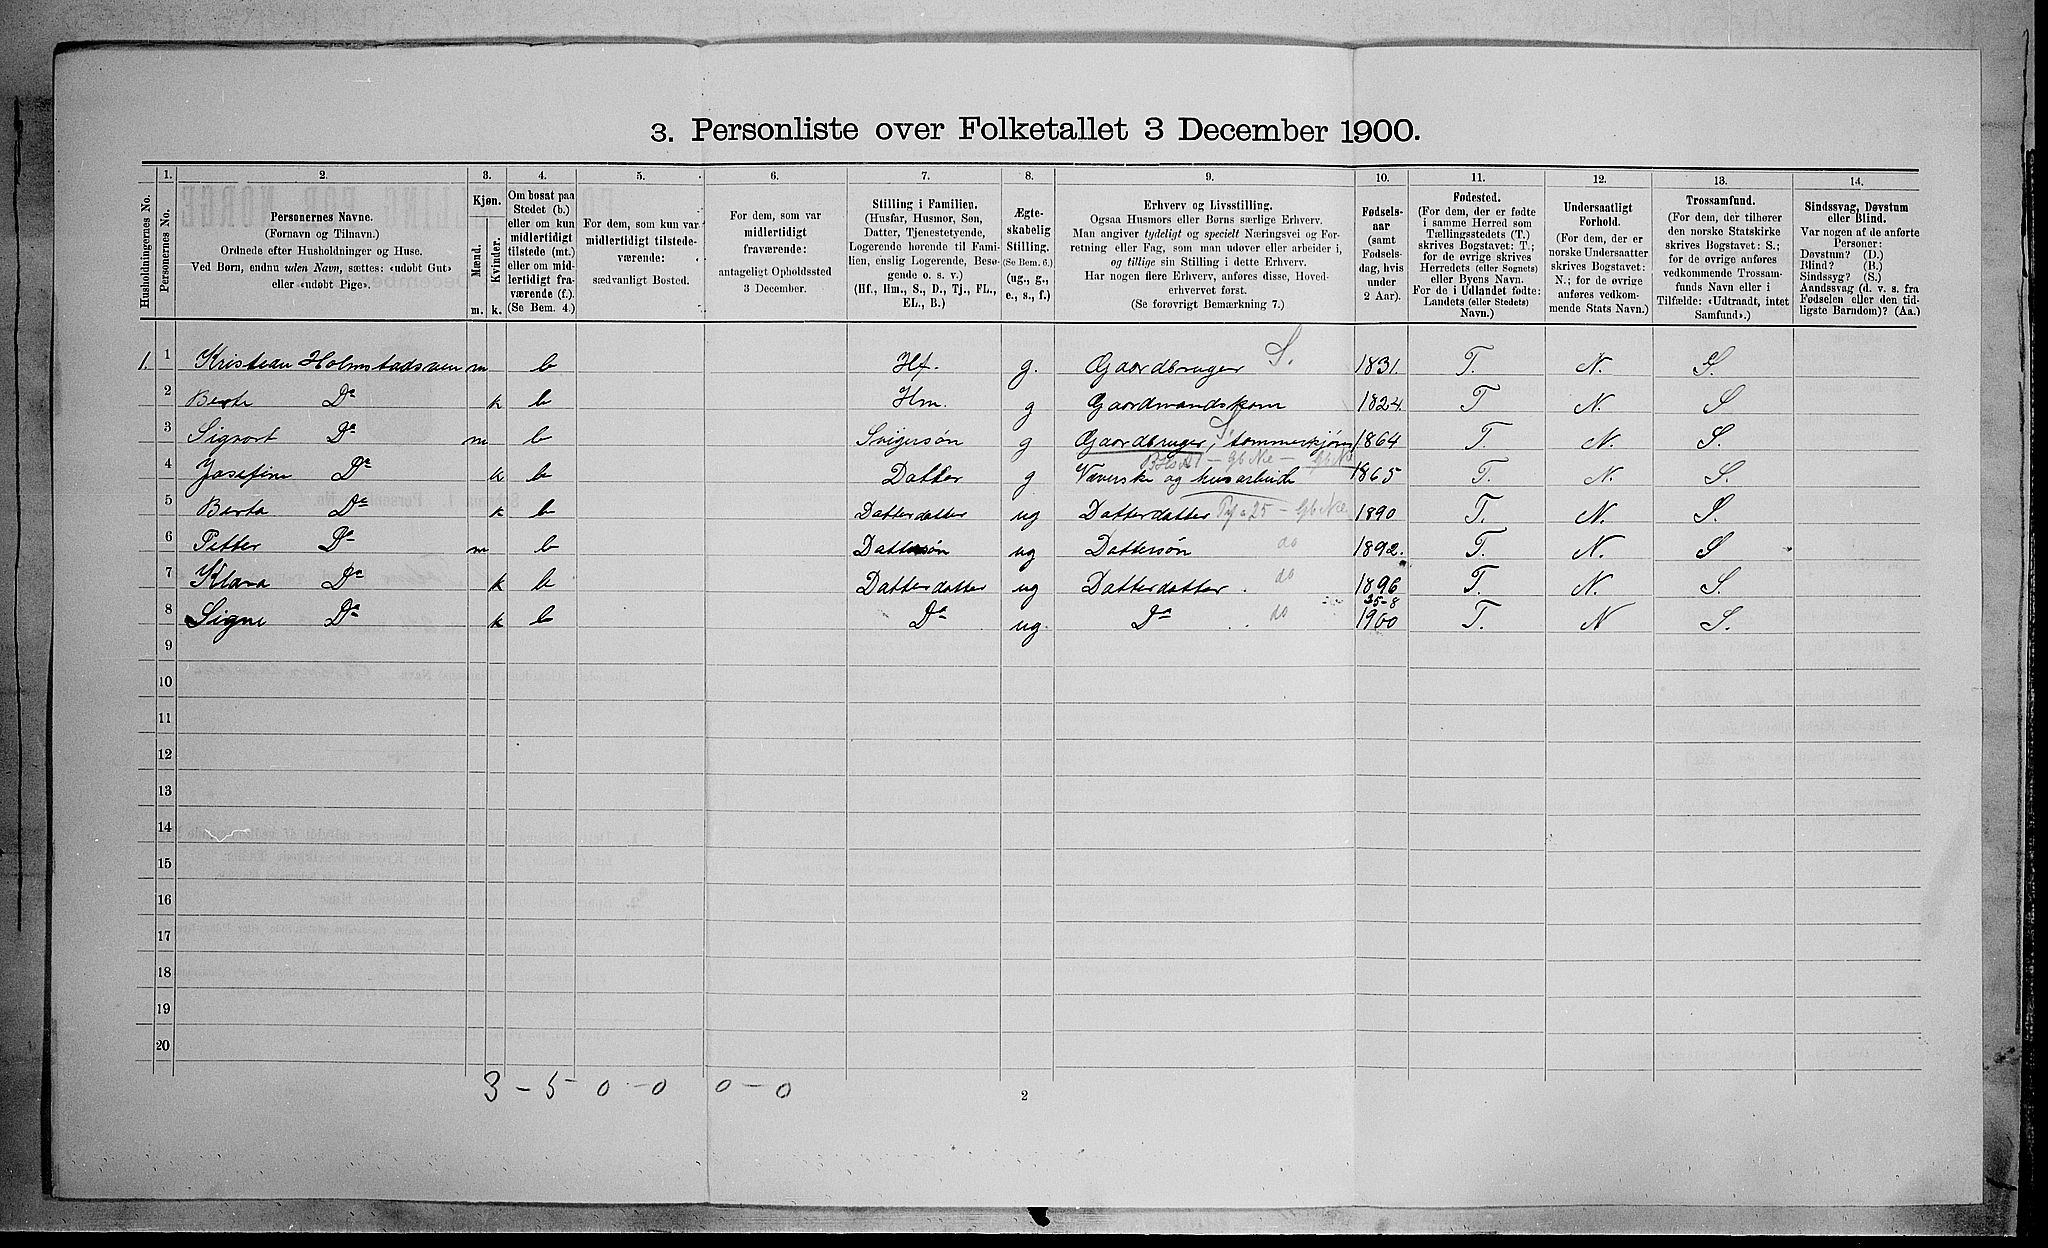 3. Personliste over Folketallet 3 December 1900.
Husholdningernes No.
1.
Personernes No.
2.
Personernes Navne.
(Fornavn og Tilnavn.)
Ordnede efter Husholdninger og Huse.
Ved Børn, endnu uden Navn, sættes: «udøbt Gut»
eller «udøbt Pige».
3.
Kjøn.
Mænd.
Kvinder.
m. k.
4.
Om bosat paa
Stedet (b.)
eller om kun
midlertidigt
tilstede (mt.)
eller om mid-
lertidigt fra-
værende (f.).
(Se Bem. 4.)
5.
For dem, som kun var
midlertidigt tilstede-
værende:
sædvanligt Bosted.
6.
For dem, som var
midlertidigt
fraværende:
antageligt Opholdssted
3 December.
7.
Stilling i Familien.
(Husfar, Husmor, Søn,
Datter, Tjenestetyende,
Logerende hørende til Fami-
lien, enslig Logerende, Besø-
gende o. s. v.)
(Hf., Hm., S., D., Tj., FL.,
EL., B.)
8.
Ægte-
skabelig
Stilling.
(Se Bem. 6.)
(ug., g.,
e., s., f.)
9.
Erhverv og Livsstilling.
Ogsaa Husmors eller Børns særlige Erhverv.
Man angiver tydeligt og specielt Næringsvei og For-
retning eller Fag, som man udøver eller arbeider i,
og tillige sin Stilling i dette Erhverv.
Har nogen flere Erhverv, anføres disse, Hoved-
erhvervet først.
(Se forøvrigt Bemærkning 7.)
10.
Fødsels-
aar
(samt
Fødsels-
dag, hvis
under
2 Aar).
11.
Fødested.
(For dem, der er fødte
i samme Herred som
Tællingsstedets (T.)
skrives Bogstavet: T.;
for de øvrige skrives
Herredets (eller Sognets)
eller Byens Navn.
For de i Udlandet fødte:
Landets (eller Stedets)
Navn.)
12.
Undersaatligt
Forhold.
(For dem, der er
norske Undersaatter
skrives Bogstavet:
N.; for de øvrige
anføres vedkom-
mende Stats Navn.)
13.
Trossamfund.
(For dem, der tilhører
den norske Statskirke
skrives Bogstavet: S.;
for de øvrige anføres
vedkommende Trossam-
funds Navn eller i
Tilfælde: «Udtraadt, intet
Samfund».)
14.
Sindssvag, Døvstum
eller Blind.
Var nogen af de anførte
Personer:
Døvstum? (D.)
Blind? (B.)
Sindssyg? (S.)
Aandssvag (d. v. s. fra
Fødselen eller den tid-
ligste Barndom)? (Aa.)
1. 1 Kristian Holmstadsven m b Hf. g. Gaardbruger S. 1831. T. N. S.
2 Berte Do k b Hm. g Gaardmandskone 1824. T N. S
3 Sigvart Do m b Svigersøn g Gaardbruger, tømmerkjører 1864 T N. S.
4 Josefine Do k b Datter g Væverske og husarbeide 1865 T. N. S
5 Berta Do k b Datterdatter ug Datterdatter 1890 T. N. S.
6 Petter Do m b Dattersøn ug Dattersøn do 1892. T. N. S
7 Klara Do k b Datterdatter ug Datterdatter. do 1896 T. N. S.
8 Signe Do k b Do ug. Do do 25-8 1900 T. N S.
9
10
11
12
13
14
15
16
17
18
19
20
3 - 5 0 - 0 0 - 0
2